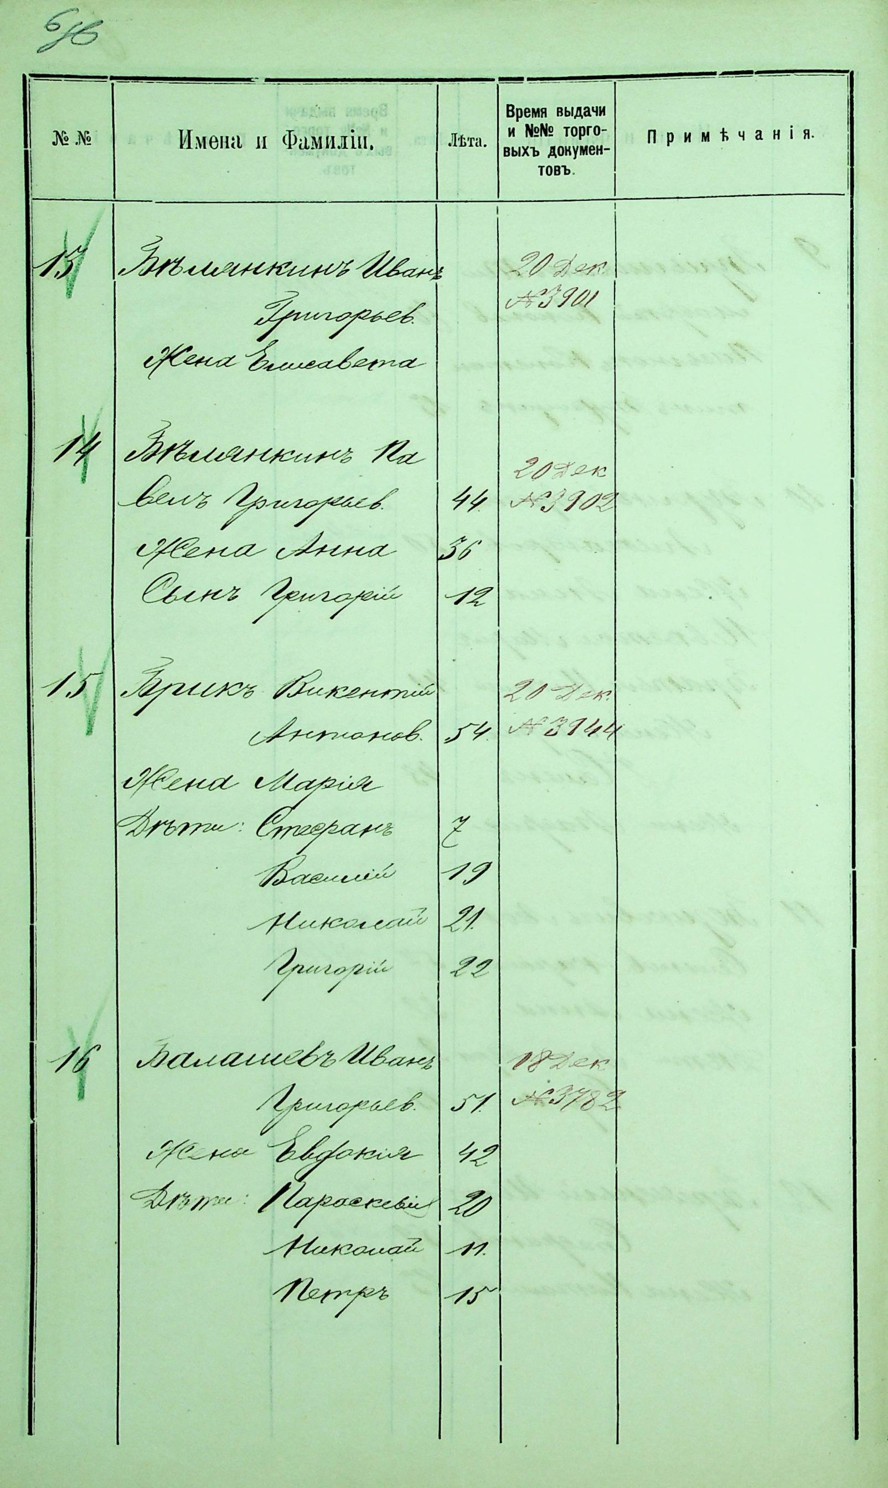 № №
Имена и Фамиліи.
Лѣта.
Время выдачи
и №№ торго-
выхъ докумен-
товъ.
Примѣчанія.
13 Бѣлянкинъ Иванъ 20 Дек
Григорьев. № 3901
Жена Елисавета
14 Бѣлянкинъ Па 20 Дек
велъ Григорьев. 44 № 3902
Жена Анна 36
Сынъ Григорій 12
15 Брикъ Викентій 20 Дек.
Антонов. 54. № 3944
Жена Марія
Дѣти: Стефанъ 7
Василій 19
Николай 21.
Григорій 22
16 Балашевъ Иванъ 18 Дек
Григорьев. 51. № 3782
Жена Евдокія 42
Дѣти: Параскевія 20
Николай 11.
Петръ 15